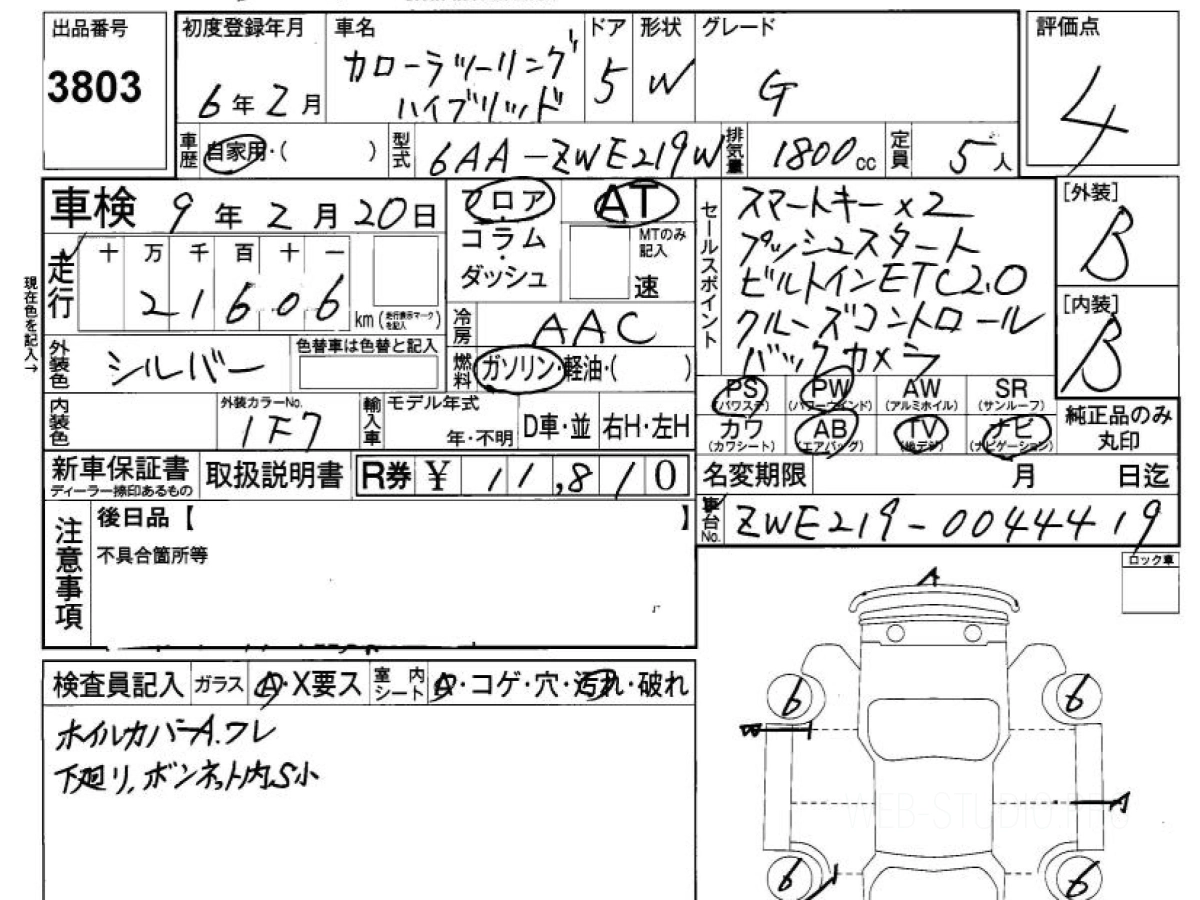 出品番号
3803
初度登録年月
6年2月
車名
カローラツーリング
ハイブリッド
ドア
5
形状
W
グレード
G
評価点
4
車歴
自家用・(　　)
型式
6AA-ZWE219W
排気量
1800cc
定員
5人
車検 9年2月20日
フロア
・
コラム
・
ダッシュ
AT
MTのみ
記入
速
セールスポイント
スマートキー×2
プッシュスタート
ビルトインETC2.0
クルーズコントロール
バックカメラ
[外装]
B
[内装]
B
現在色を記入→
走行
十 万 千 百 十 一
21606
km(走行表示マークを記入)
冷房
AAC
外装色
シルバー
色替車は色替と記入
燃料
ガソリン・軽油・(　　)
PS
(パワステ)
PW
(パワーウインド)
AW
(アルミホイル)
SR
(サンルーフ)
カワ
(カワシート)
AB
(エアバッグ)
TV
(地デジ)
ナビ
(ナビゲーション)
純正品のみ
丸印
内装色
外装カラーNo.
1F7
輸入車
モデル年式
年・不明
D車・並
右H・左H
新車保証書
ディーラー捺印あるもの
取扱説明書
R券 ¥ 11,810
名変期限
月 日迄
車台No.
ZWE219-0044419
注意事項
後日品【　　】
不具合箇所等
ロック車
A
検査員記入
ガラス
A・X要ス
室内
シート
A・コゲ・穴・汚れ・破れ
ホイルカバーA.ワレ
下廻リ,ボンネット内,S小
6
6
W
A
6
6
WEB-STUDIO.PRO